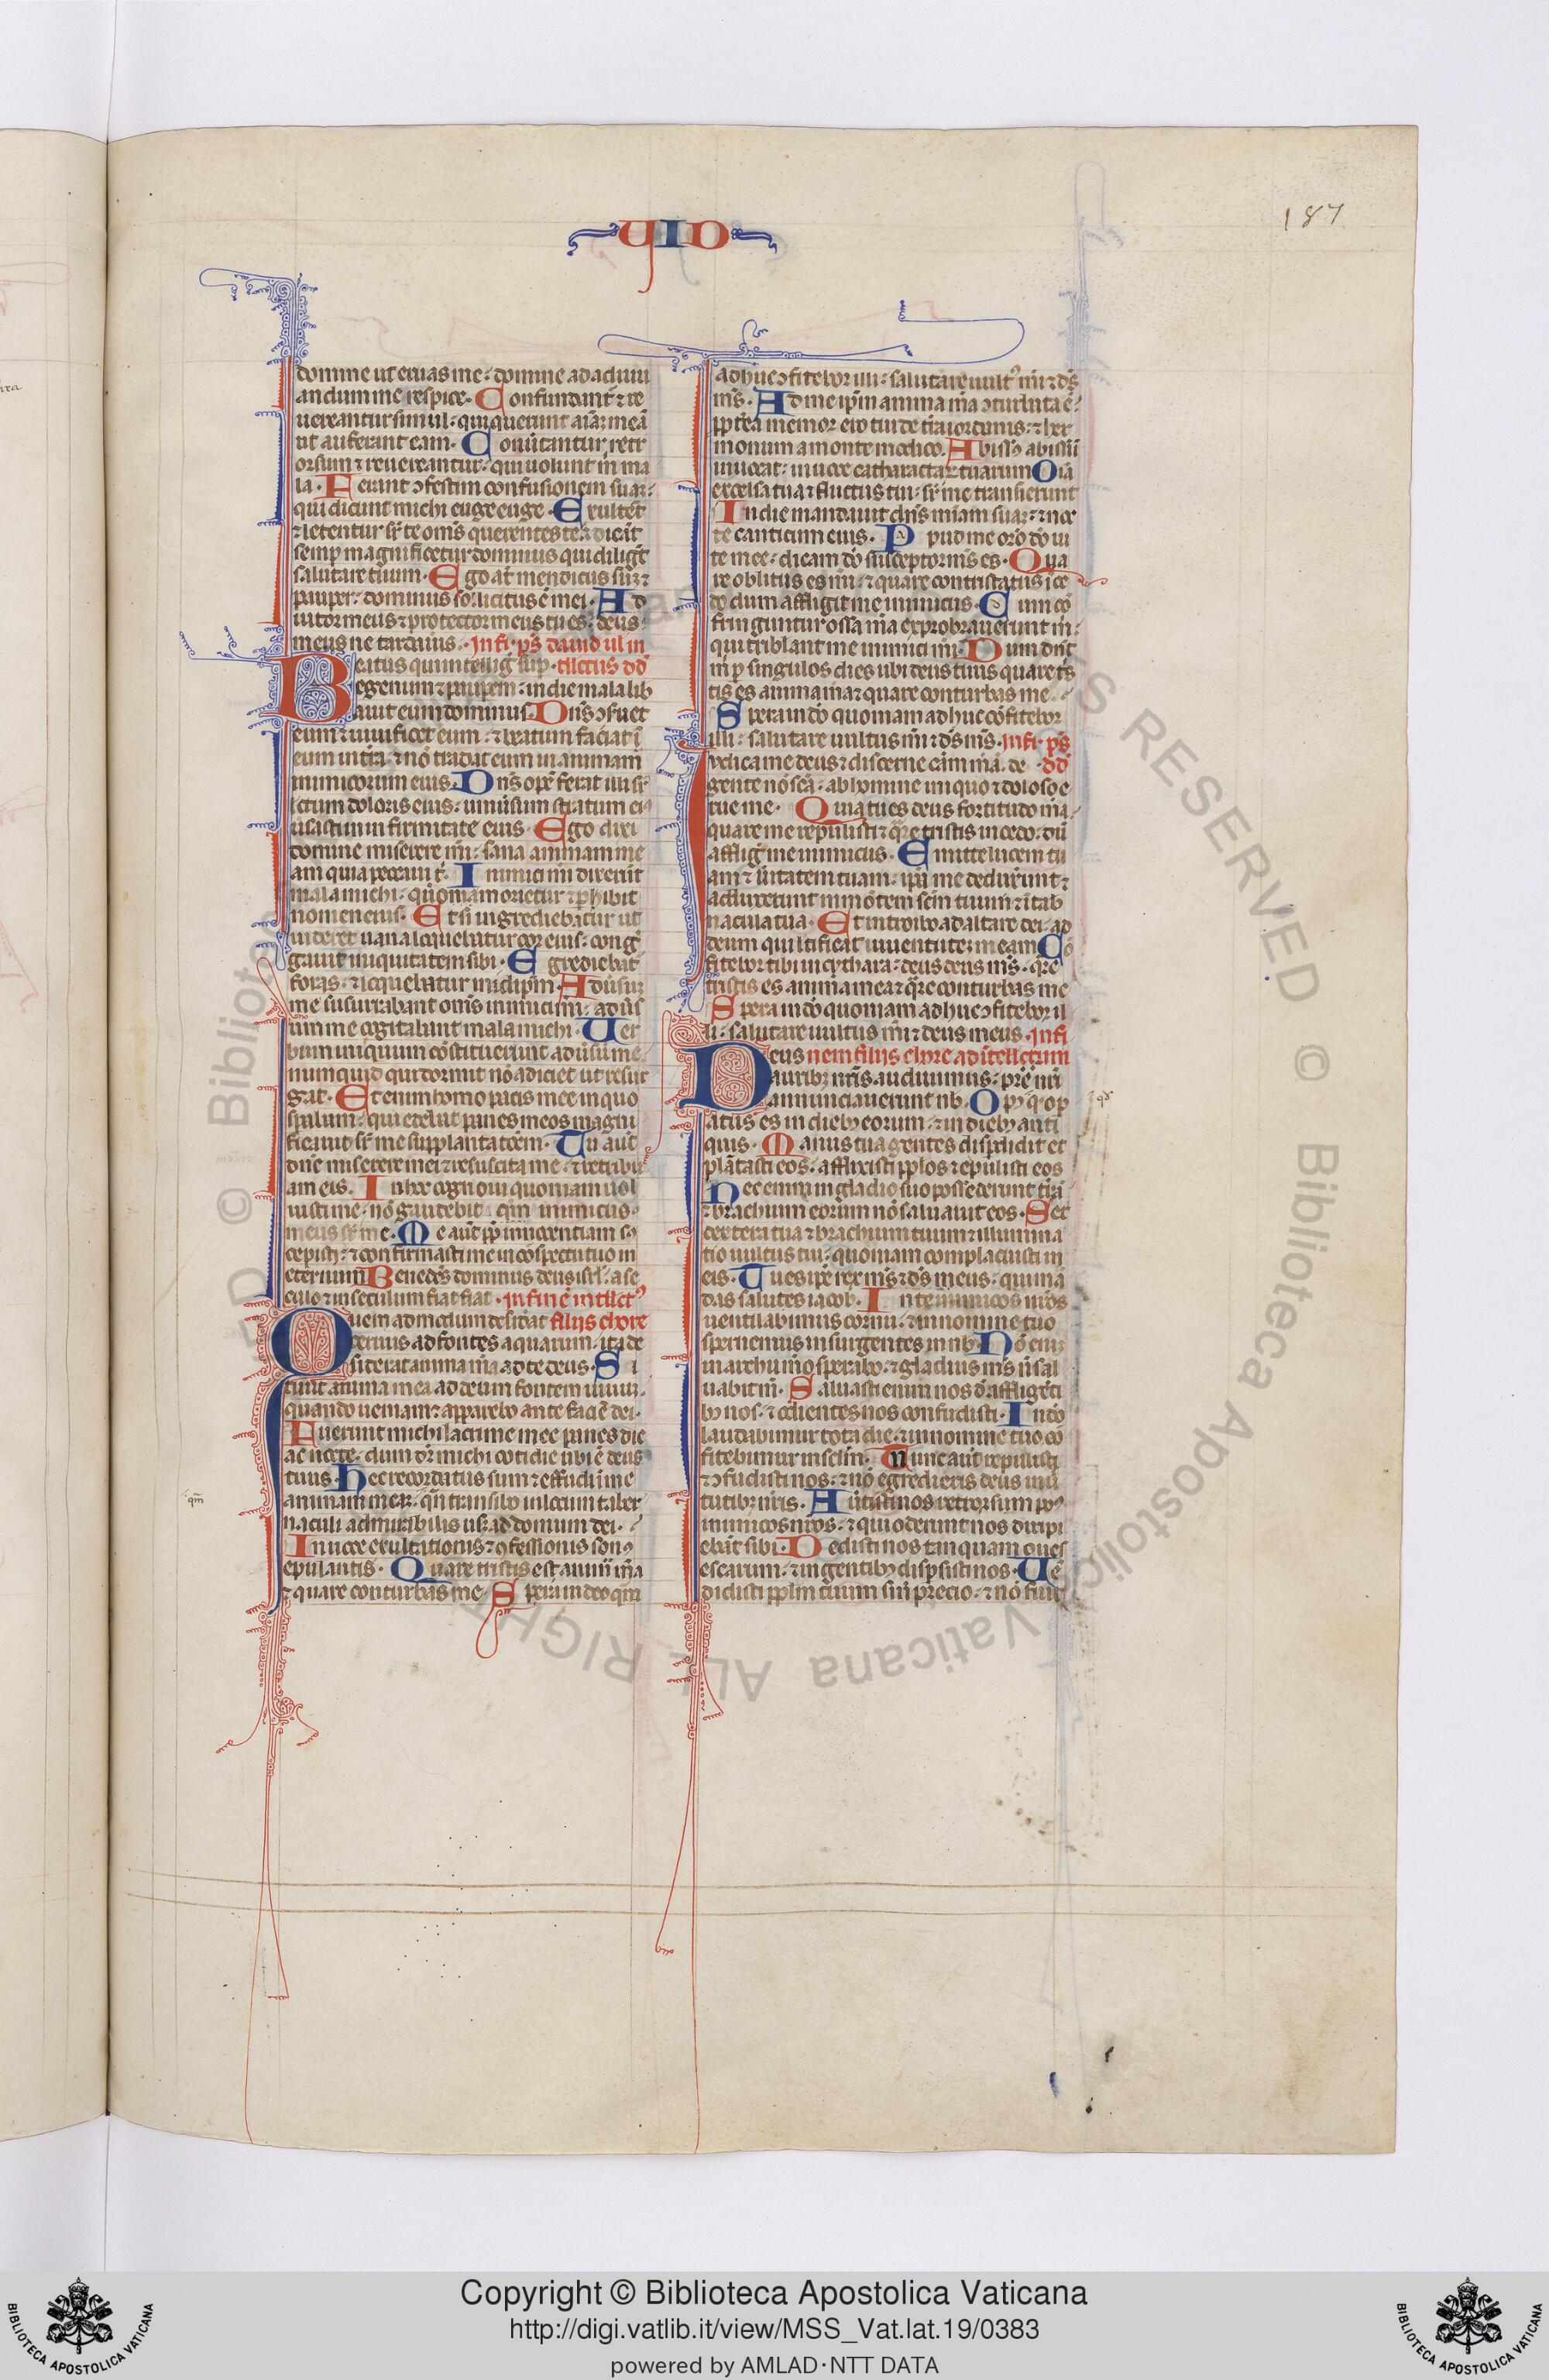 187
UID
domine ut eruas me: domine ad adiuu
andum me respice. Confundant᷑ ⁊ re
uereantur simul: qui querunt aīaꝫ meā
ut auferant eam. Conūtantur retr
orsum ⁊ reuereantur: qui uolunt m̄ ma
la. Ferant ɔfestim confusionem suaꝫ:
qui dicunt michi euge euge. Exultēt
⁊ letentur sr̄ te om̄s querentes te ⁊ dicāt
semp magnificetur dominus qui diligūt
salutare tuum. Ego at̄ mendicus suꝫ ⁊
pauper: dominus sollicitus ē mei. Ad
iutor meus ⁊ protector meus tu es: deus
meus ne tardauis. In fi. ps̄ dauid ul in
Beatus qui intelliḡ sup. tllctus dd̄
egenum ⁊ pauꝑem: in die mala lib
auit eum dominus. Dn̄s ɔseruet
eum ⁊ uiuificet eum: ⁊ beatum faciat ī
eum in t̄ra: ⁊ nō tradat eum in animam
inimicorum eius. Dn̄s opē ferat illi sr̄
lectum doloris eius: uniūsum stratum ei⁹
ūsasti in firmitate eius. Ego dixi
domine miserere m̄: sana animam me
am quia peccaui t̄. Inimici mi dixerūt
mala michi: quō morietur ⁊ ꝑhibit
nomen eius. Et si ingrediebatur ut
uideret uana loquebatur cor eius: congͤ
gauit iniquitatem sibi. Egrediebat᷑
foras: ⁊ loquebatur in idipm̄. Adūsuꝫ
me susurrabant om̄s inimici mi: adūs
um me cogitabant mala michi. Uer
bum iniquum cōstituerunt adūsū me
numquid qui dormit nō adiciet ut resur
gat. Et enim homo pacis mee in quo
speraui: qui edebat panes meos magni
ficauit sr̄ me supplantatōem. Tu aut̄
dn̄e miserere mei ⁊ resuscita me: ⁊ retribu
am eis. In hoc cognoui quoniam uol
uisti me: nō gaudebit qm̄ inimicus
meus sr̄ me. Me aut̄ ꝓp̄ innocentiam su
cepisti: ⁊ confirmasti me in cōspectu tuo in
eternum. Benedc̄s dominus deus isrl̄ a se
culo ⁊ in seculum fiat fiat. In finē intllct⁹
Quem admodum desiderat filiis chore
ceruus ad fontes aquarum: ita de
siderat anima m̄a ad te deus. Si
tiuit anima mea ad deum fontem uiuuꝫ:
quando ueniam ⁊ apparebo ante faciē dei.
Fuerunt michi lacrime mee panes die
ac nocte: dum dr̄ michi cotidie ubi ē deus
tuus. Hec recordatus sum ⁊ effudi ī me
animam meā: qm̄ transibo in locum taber
naculi admirabilis usqꝫ ad domum dei.
In uoce exultationis ⁊ ɔfessionis son⁹
epulantis. Quare tristis est anima m̄a
⁊ quare conturbas me. Spera in deo qm̄
qm̄
adhuc ɔfitebor illi: salutare uult⁹ m̄i ⁊ ds̄
ms̄. Ad me ipm̄ anima m̄a ɔturbata ē:
ꝓpterea memor ero tui de t̄ra iordanis: ⁊ her
monum a monte modico. Abissus abissū
inuocat: in uoce catharactaꝝ tuarum. Oīa
excelsa tua ⁊ fluctus tui: sr̄ me transierunt
In die mandauit dn̄s m̄iam suaꝫ: ⁊ noc
te canticum eius. Apud me orō dō ui
te mee: dicam dō susceptor ms̄ es. Qua
re oblitus es m̄i: ⁊ quare contristatus īce
do dum affligit me inimicus. Cum cō
fringuntur ossa m̄a exprobrauerunt m̄:
qui tribulant me inimici mi. Dum dicūt
m̄ ꝑ singulos dies ubi ē deus tuus quare tͥs
tis es anima m̄a ⁊ quare conturbas me.
Spera in dō quoniam adhuc cōfitebor
illi: salutare uultus m̄i ⁊ ds̄ ms̄. In fi. ps̄
Iudica me deus ⁊ discerne cām m̄ā de dd̄
gente nō scā: ab homine iniquo ⁊ doloso e
rue me. Quia tu es deus fortitudo m̄a
quare me repulisti ⁊ qͣre tristis incedo: dū
affliḡ me inimicus. Emitte lucem tu
am ⁊ ūitatem tuam: ipā me deduxerunt ⁊
adduxerunt in mōtem scm̄ tuum ⁊ ī tab
nacula tua. Et introibo ad altare dei: ad
deum qui letificat iuuentutē meam. Cō
fitebor tibi in cythara: deus deus ms̄: qͣre
tristis es anima mea ⁊ qͣre conturbas me
Spera in dō quoniam adhuc ɔfitebor il
li: salutare uultus m̄i ⁊ deus meus. In fi
Deus nem filiis chore ad ītellectum
auribꝫ nr̄is audiuimus: pr̄es nr̄i
annunciauerunt nb̄. Opꝰ qͦ op
atus es in diebꝫ eorum: ⁊ in diebꝫ anti
quis. Manus tua gentes disperdidit et
plātasti eos: afflixisti pplos ⁊ expulisti eos
Nec enim in gladio suo possederunt t̄rā
⁊ brachium eorum nō saluauit eos. Sed
dextera tua ⁊ brachium tuum ⁊ illumina
tio uultus tui: quoniam complacuisti in
eis. Tu es ipē rex ms̄ ⁊ ds̄ meus: qui mā
das salutes iacob. In te inimicos nr̄os
uentilabimus cornu: ⁊ in nomine tuo
spernemus insurgentes in nb̄. Nō eniꝫ
in archu m̄o sperabo: ⁊ gladius ms̄ n̄ sal
uabit m̄. Saluasti enim nos d̄ affligēti
bꝫ nos: ⁊ odientes nos confudisti. In dō
laudabimur tota die: ⁊ in nomine tuo cō
fitebimur in sclm̄. Nunc aut̄ repulisti
⁊ ɔfudisti nos: ⁊ nō egredieris deus in uir
tutibꝫ nr̄is. Aūtisti nos retrorsum pꝰ
inimicos nr̄os: ⁊ qui oderunt nos diripi
ebāt sibi. Dedisti nos tanquam oues
escarum: ⁊ in gentibꝫ dispersisti nos. Uē
didisti pplm̄ tuum sin̄ precio: ⁊ nō fuit
Copyright © Biblioteca Apostolica Vaticana
http://digi.vatlib.it/view/MSS_Vat.lat.19/0383
powered by AMLAD·NTT DATA
BIBLIOTECA APOSTOLICA VATICANA
BIBLIOTECA APOSTOLICA VATICANA